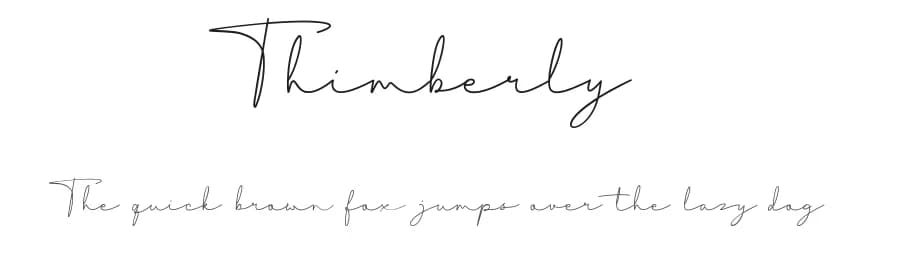 Thimberly
The quick brown fox jumps over the lazy dog